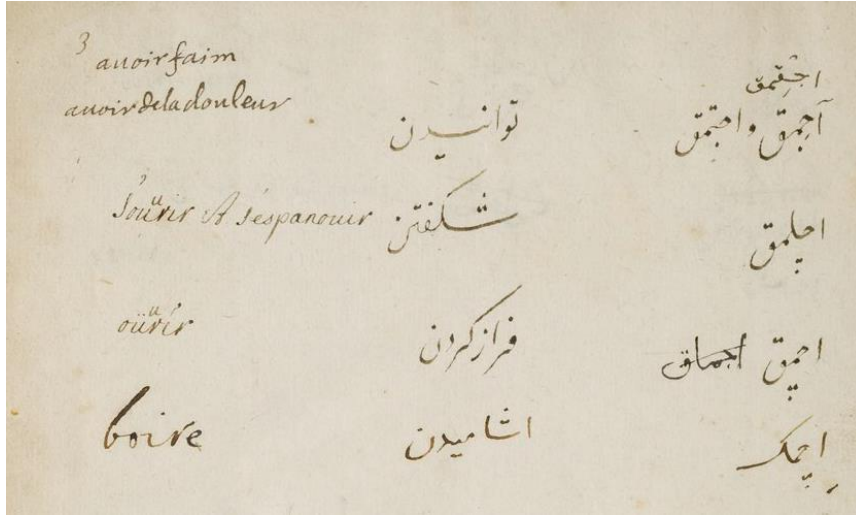 3 auoir faim
اجقمق
auoir de la douleur توانسیدن آجمق واجتمق
s'ouurir & s'espanouir شكفتن اچلمق
ouurir فراز كردن اچمق
boire اشامیدن اچمك